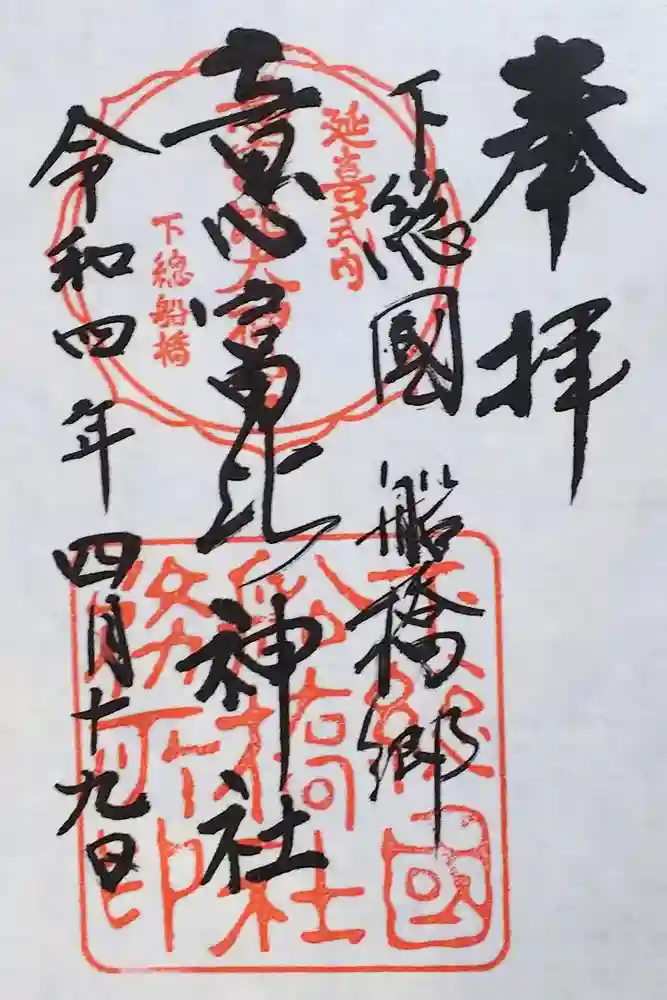 奉拝
下総國 船橋郷
意富比神社
令和四年四月十九日
延喜式内
下總船橋
下総國
船橋社
務所印